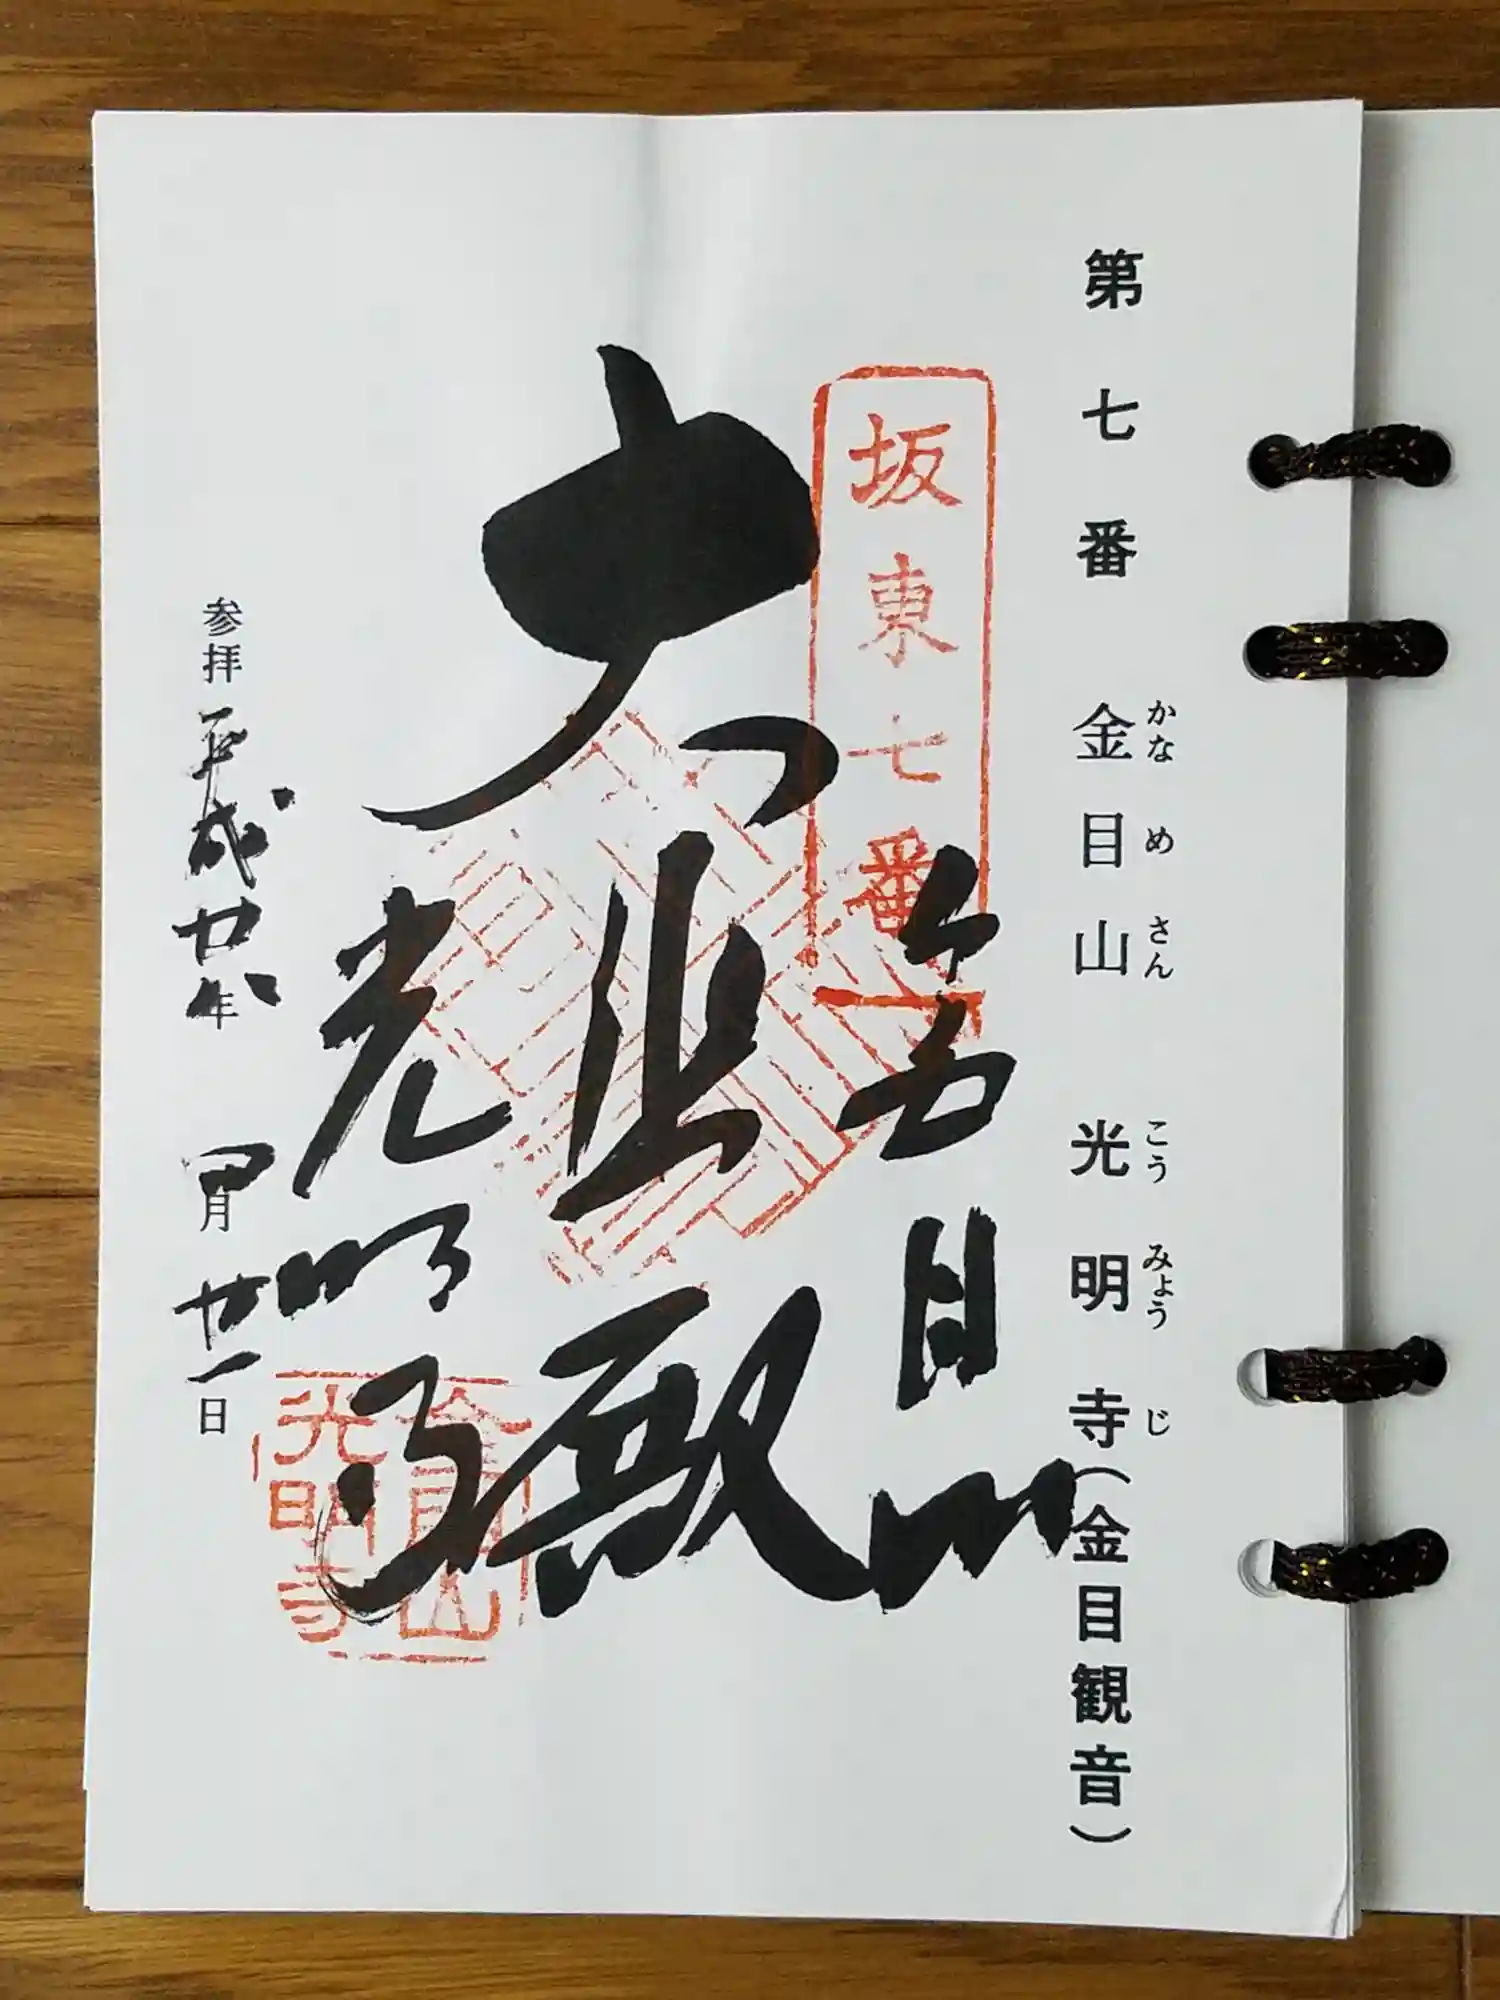 第七番 金目山 光明寺(金目観音)
かな め さん こう みょう じ
坂東七番
金目山
大悲殿
光明寺
金目山
光明寺
参拝 平成廿八年 四月廿一日